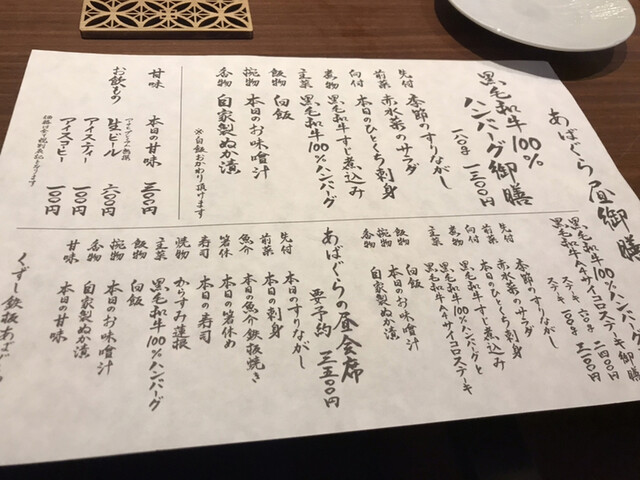 あばぐら昼御膳
黒毛和牛100%
ハンバーグ御膳
一八〇g 一三〇〇円
先付 季節のすりながし
前菜 赤水菜のサラダ
向付 本日のひとくち刺身
煮物 黒毛和牛すじ煮込み
主菜 黒毛和牛100%ハンバーグ
飯物 白飯
椀物 本日のお味噌汁
香物 自家製ぬか漬
※白飯おかわり頂けます
甘味 本日の甘味 三〇〇円
お飲もの
生ビール 六〇〇円
アイスティー 一〇〇円
アイスコーヒー 一〇〇円
黒毛和牛100%ハンバーグ
黒毛和牛A4サイコロステーキ御膳
ステーキ 一〇〇g 二四〇〇円
先付 季節のすりながし
前菜 赤水菜のサラダ
向付 本日のひとくち刺身
煮物 黒毛和牛すじ煮込み
主菜 黒毛和牛100%ハンバーグと
黒毛和牛A4サイコロステーキ
飯物 白飯
椀物 本日のお味噌汁
香物 自家製ぬか漬
あばぐらの昼会席
要予約 三五〇〇円
先付 本日のすりながし
前菜 本日の刺身
魚介 本日の魚介鉄板焼き
箸休 本日の箸休め
寿司 本日の寿司
焼物 からすみ蓮根
主菜 黒毛和牛100%ハンバーグ
飯物 白飯
椀物 本日のお味噌汁
香物 自家製ぬか漬
甘味 本日の甘味
くずし鉄板あばぐら